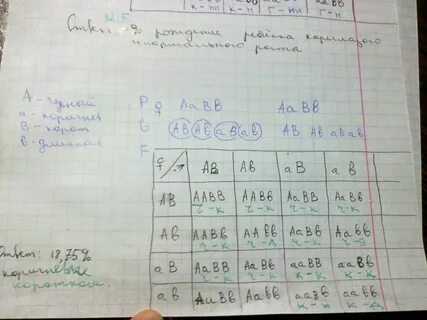 к-ни к-н г-ни г-н
12.5
Ответ: % рождение ребёнка кареглазого
и нормального роста
А - черный
а - коричнев
В - корот
в - длинная
Р ♀ АаВв АаВв
G АВ Ав аВ ав АВ Ав аВ ав
F
АВ Ав аВ ав
АВ ААВВ ААВв АаВВ АаВв
ч-к ч-к ч-к ч-к
Ав ААВв ААвв АаВв Аавв
ч-к ч-д ч-к ч-д
аВ АаВВ АаВв ааВВ ааВв
ч-к ч-к к-к к-к
ав АаВв Аавв ааВв аавв
к-к к-д
Ответ: 18,75%
коричневые
короткош.